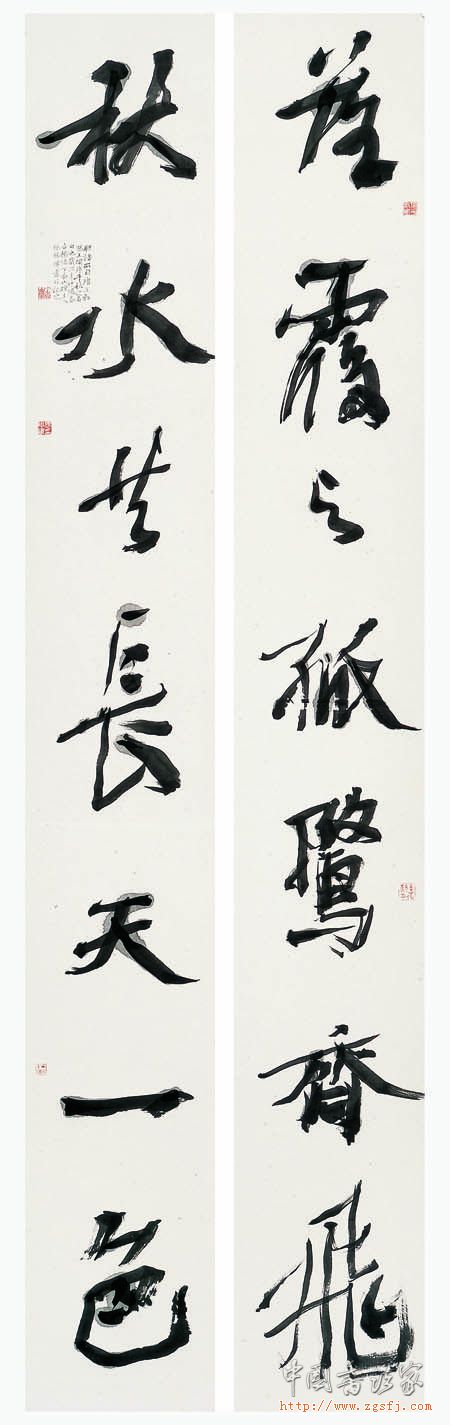 落霞与孤鶩齊飛
秋水共長天一色
中国书法家
http://www.zgsfj.com